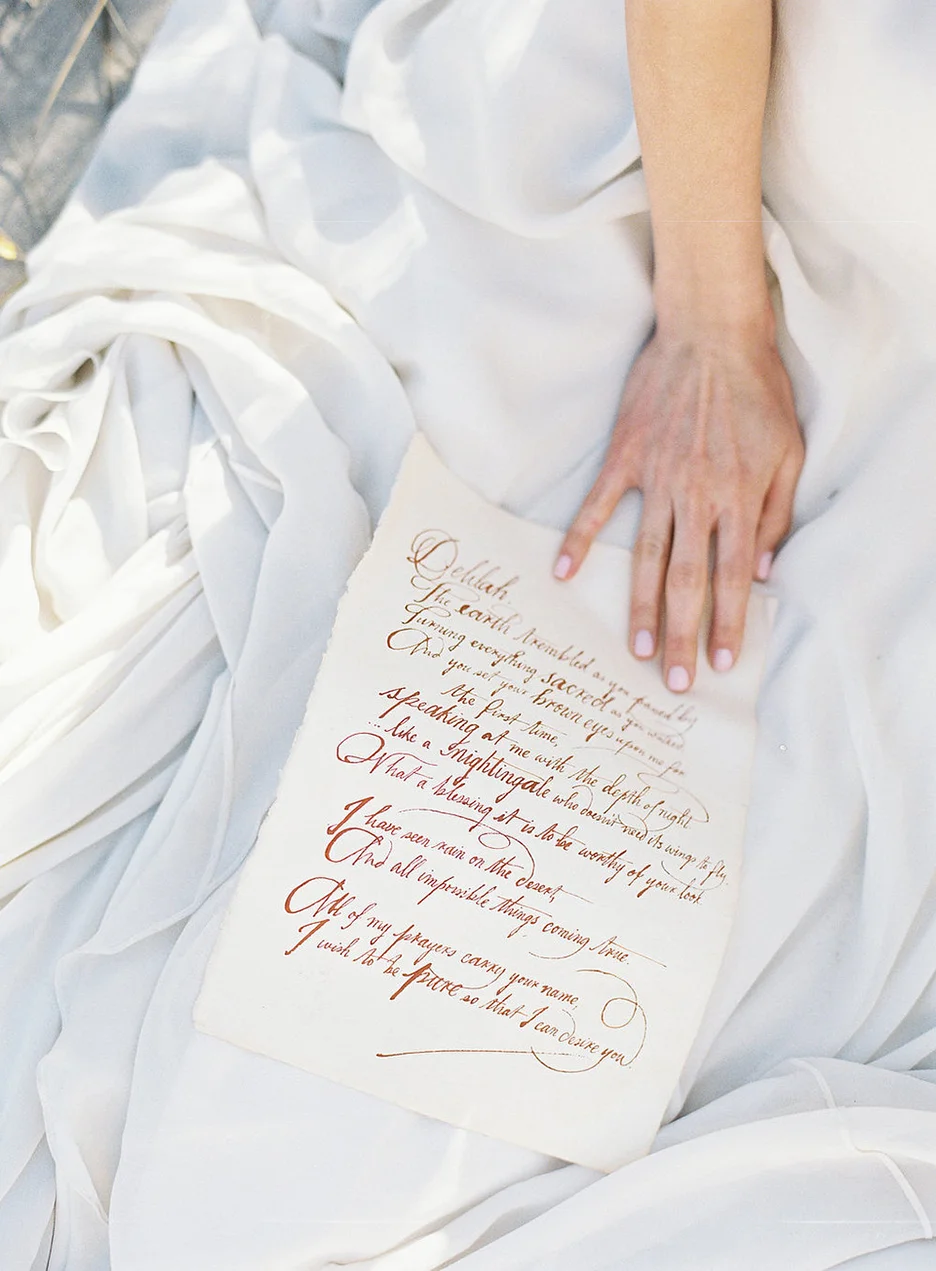 Delilah,
The earth trembled as you passed by
Turning everything sacred as you walked
And you set your brown eyes upon me for
the first time,
speaking at me with the depth of night
... like a nightingale who doesn't need its wings to fly.
What a blessing it is to be worthy of your look.
I have seen rain on the desert,
And all impossible things coming true.
All of my prayers carry your name,
I wish to be pure so that I can desire you.